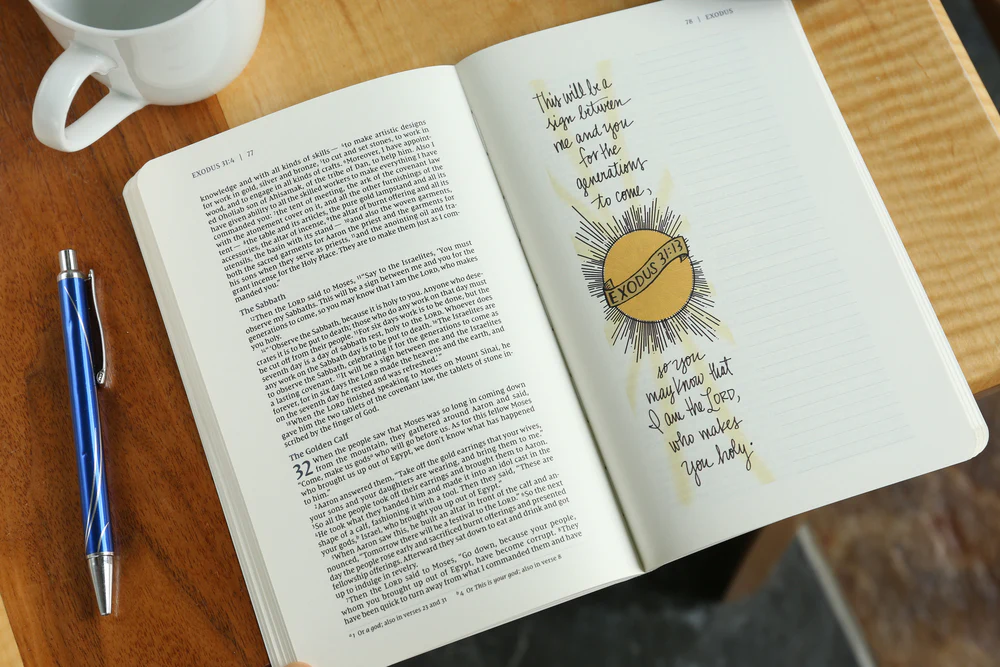 EXODUS 31:4 | 77
knowledge and with all kinds of skills — ⁵to make artistic designs
for work in gold, silver and bronze, ⁵to cut and set stones, to work in
wood, and to engage in all kinds of crafts. ⁶Moreover, I have appoint-
ed Oholiab son of Ahisamak, of the tribe of Dan, to help him. Also I
have given ability to all the skilled workers to make everything I have
commanded you: ⁷the tent of meeting, the ark of the covenant law
with the atonement cover on it, and all the other furnishings of the
tent — ⁸the table and its articles, the pure gold lampstand and all its
accessories, the altar of incense, ⁹the altar of burnt offering and all its
utensils, the basin with its stand — ¹⁰and also the woven garments,
both the sacred garments for Aaron the priest and the garments for
his sons when they serve as priests, ¹¹and the anointing oil and fra-
grant incense for the Holy Place. They are to make them just as I com-
manded you.”
The Sabbath
¹²Then the LORD said to Moses, ¹³“Say to the Israelites, ‘You must
observe my Sabbaths. This will be a sign between me and you for the
generations to come, so you may know that I am the LORD, who makes
you holy.
¹⁴“‘Observe the Sabbath, because it is holy to you. Anyone who dese-
crates it is to be put to death; those who do any work on that day must
be cut off from their people. ¹⁵For six days work is to be done, but the
seventh day is a day of sabbath rest, holy to the LORD. Whoever does
any work on the Sabbath day is to be put to death. ¹⁶The Israelites are
to observe the Sabbath, celebrating it for the generations to come as
a lasting covenant. ¹⁷It will be a sign between me and the Israelites
forever, for in six days the LORD made the heavens and the earth, and
on the seventh day he rested and was refreshed.’”
¹⁸When the LORD finished speaking to Moses on Mount Sinai, he
gave him the two tablets of the covenant law, the tablets of stone in-
scribed by the finger of God.
The Golden Calf
32 When the people saw that Moses was so long in coming down
from the mountain, they gathered around Aaron and said,
“Come, make us gods who will go before us. As for this fellow Moses
who brought us up out of Egypt, we don’t know what has happened
to him.”
²Aaron answered them, “Take off the gold earrings that your wives,
your sons and your daughters are wearing, and bring them to me.”
³So all the people took off their earrings and brought them to Aaron.
⁴He took what they handed him and made it into an idol cast in the
shape of a calf, fashioning it with a tool. Then they said, “These are
your gods, Israel, who brought you up out of Egypt.”
⁵When Aaron saw this, he built an altar in front of the calf and an-
nounced, “Tomorrow there will be a festival to the LORD.” ⁶So the next
day the people rose early and sacrificed burnt offerings and presented
fellowship offerings. Afterward they sat down to eat and drink and got
up to indulge in revelry.
⁷Then the LORD said to Moses, “Go down, because your people,
whom you brought up out of Egypt, have become corrupt. ⁸They
have been quick to turn away from what I commanded them and have
1 Or a god; also in verses 23 and 31   4 Or This is your god; also in verse 8
78 | EXODUS
This will be a
sign between
me and you
for the
generations
to come,
EXODUS 31:13
so you
may know that
I am the LORD,
who makes
you holy.